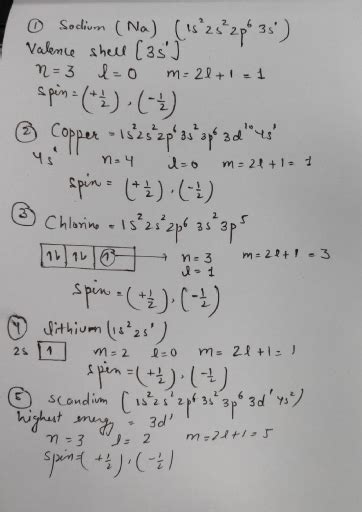 ① Sodium (Na) (1s² 2s² 2p⁶ 3s¹)
Valence shell [3s¹]
n = 3 l = 0 m = 2l + 1 = 1
Spin = (+1/2), (-1/2)
② Copper = 1s² 2s² 2p⁶ 3s² 3p⁶ 3d¹⁰ 4s¹
4s¹ n = 4 l = 0 m = 2l + 1 = 1
Spin = (+1/2), (-1/2)
③ Chlorine = 1s² 2s² 2p⁶ 3s² 3p⁵
1↓ 1↓ 1 → n = 3 m = 2l + 1 = 3
l = 1
Spin = (+1/2), (-1/2)
④ lithium (1s² 2s¹)
2s 1 n = 2 l = 0 m = 2l + 1 = 1
Spin = (+1/2), (-1/2)
⑤ Scandium [1s² 2s² 2p⁶ 3s² 3p⁶ 3d¹ 4s²)
highest energy = 3d¹
n = 3 l = 2 m = 2l + 1 = 5
Spin = (+1/2), (-1/2)